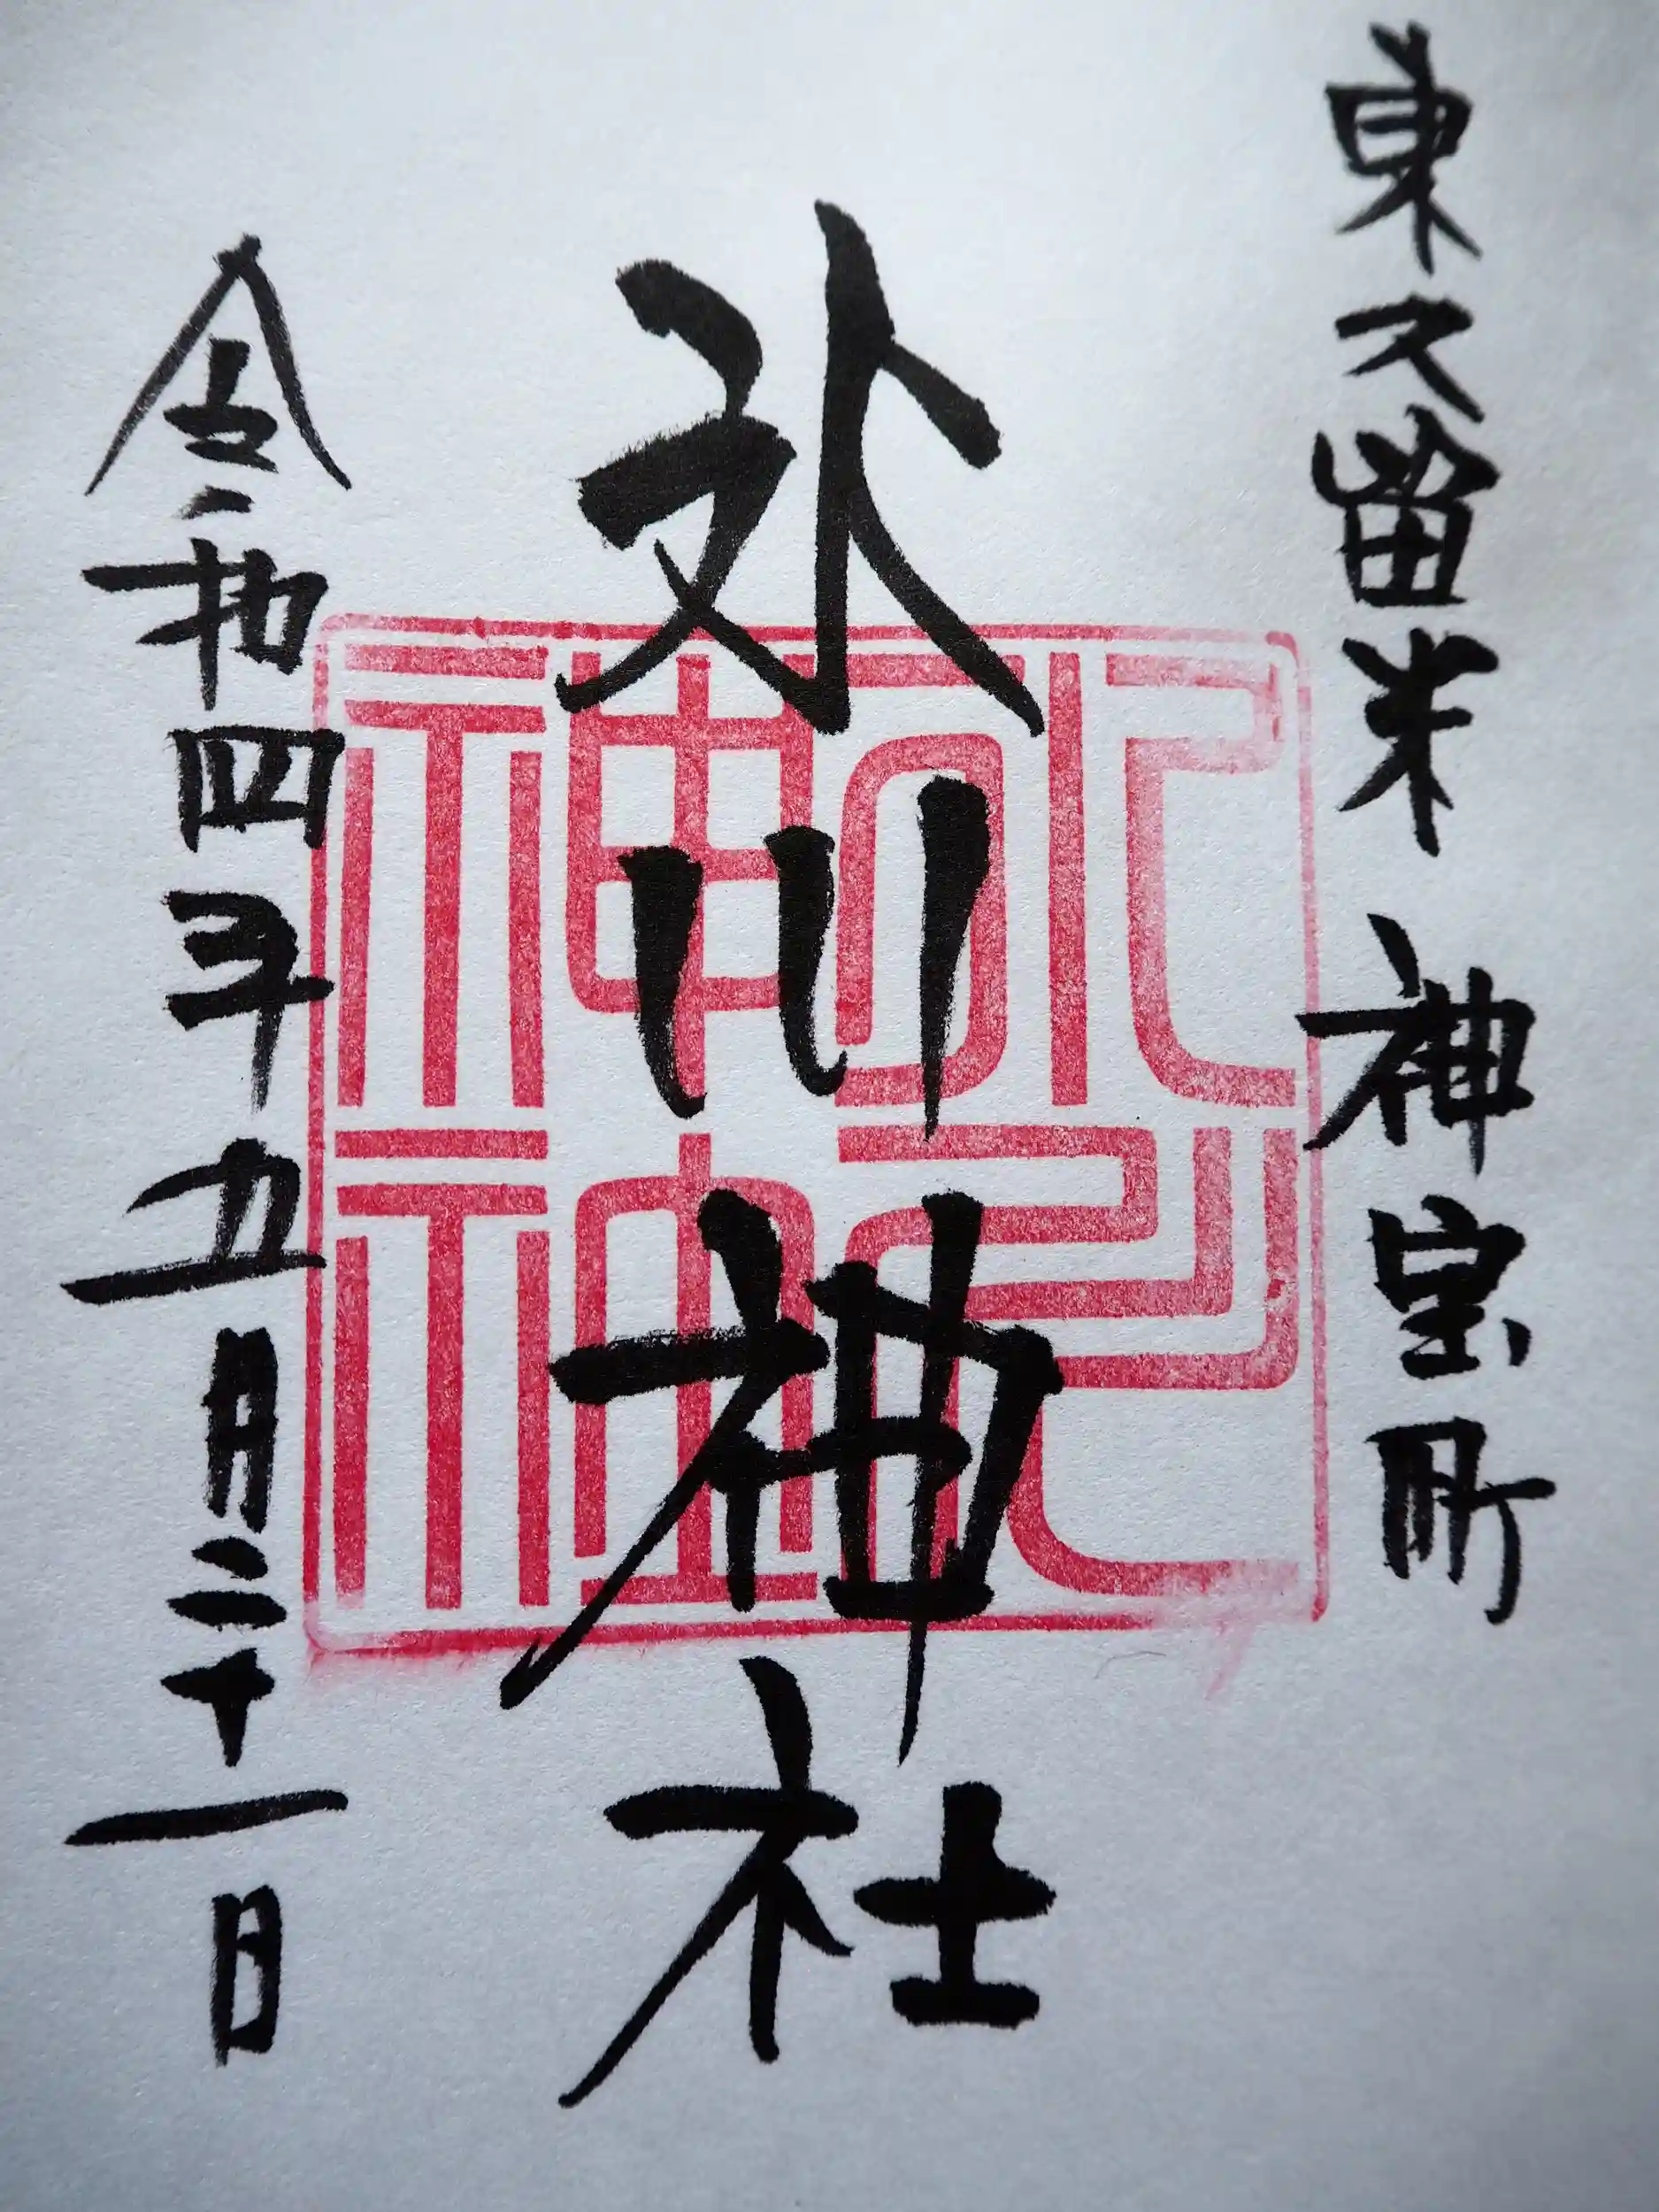 東久留米 神宝町
氷川神社
令和四年五月三十一日
氷川
神社